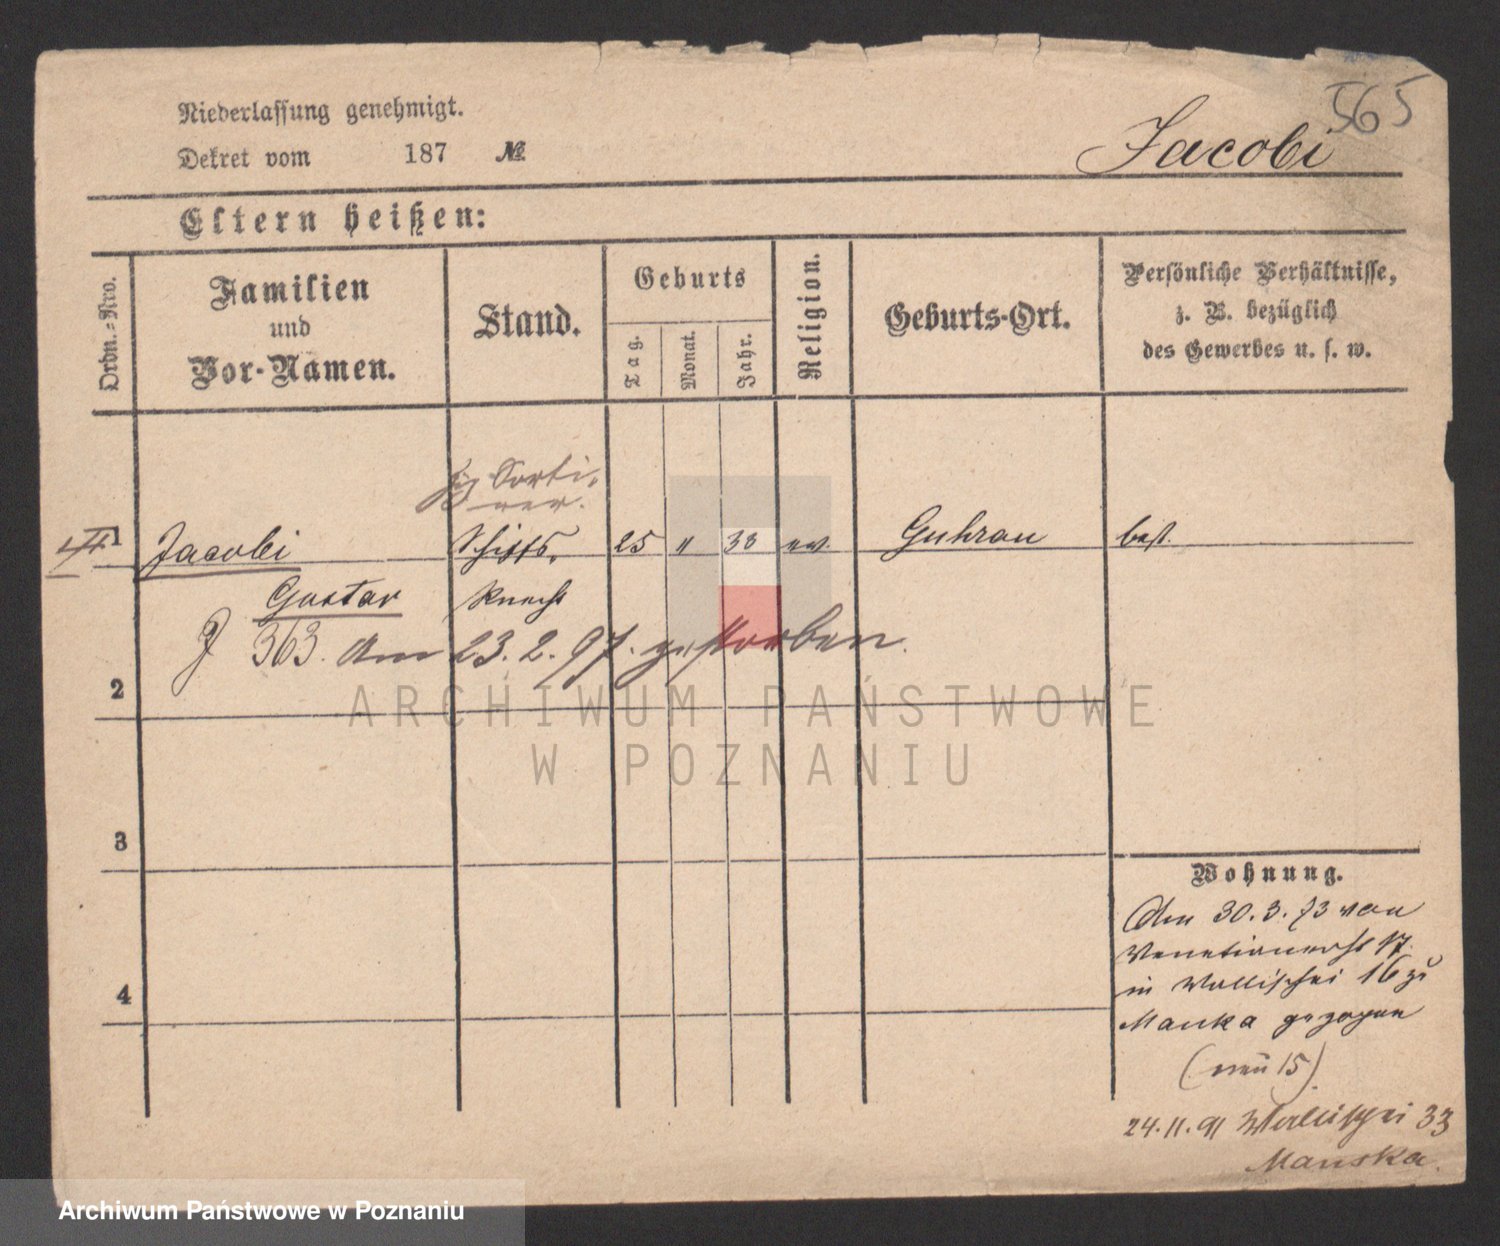 565
Niederlassung genehmigt.
Jacobi
Dekret vom 187 №
Eltern heißen:
Ordn.-Nro.
Familien
und
Vor-Namen.
Stand.
Geburts
Tag.
Monat.
Jahr.
Religion.
Geburts-Ort.
Persönliche Verhältnisse,
z. B. bezüglich
des Gewerbes u. s. w.
Zig Sorti-
rer.
1 Jacobi Schiffs- 25 " 33 ev. Guhrau best.
Gustav Knecht
363. Am 23.2.97. gestorben.
2
3
4
Wohnung.
Am 30.3.73 von
Venetianerst 17
in Wallischei 16 zu
Manka gezogen
(neu 15)
24.11.91 Wallischei 33
Manska.
ARCHIWUM PAŃSTWOWE
W POZNANIU
Archiwum Państwowe w Poznaniu